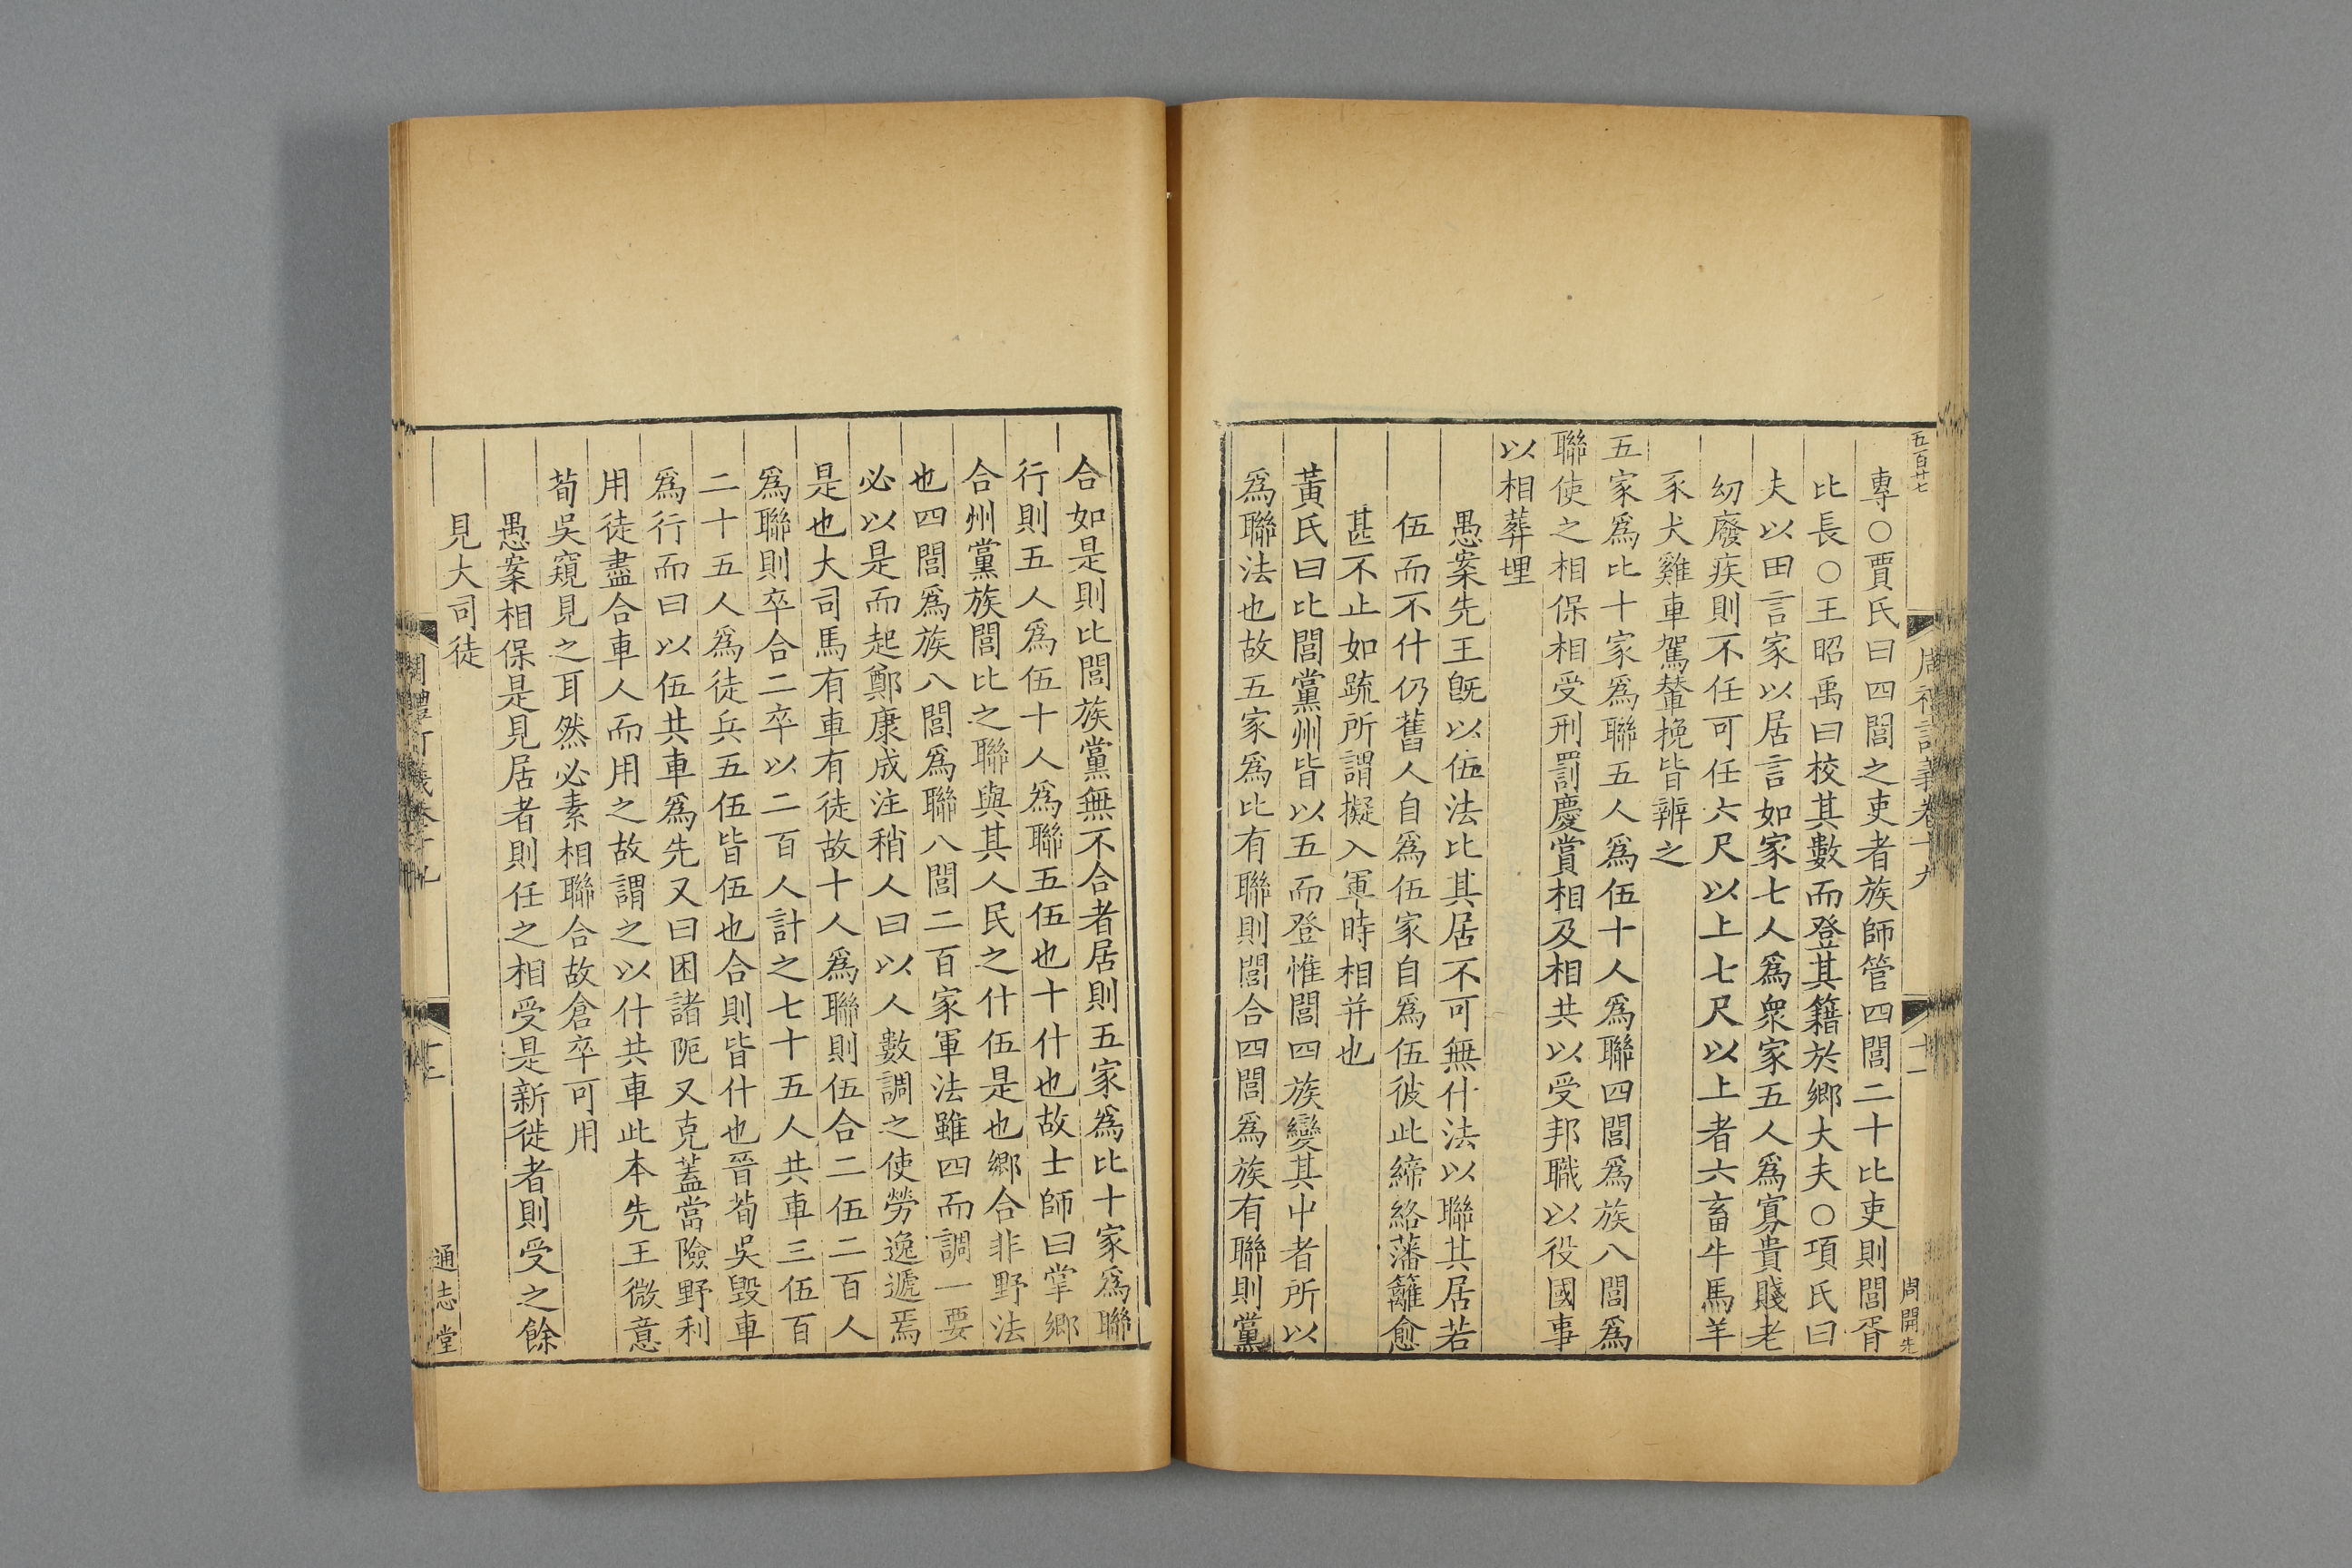 五百廿七
周禮訂義卷十九
十一
周開先
專○賈氏曰四閭之吏者族師管四閭二十比吏則閭胥
比長○王昭禹曰校其數而登其籍於鄉大夫○項氏曰
夫以田言家以居言如家七人爲衆家五人爲寡貴賤老
幼廢疾則不任可任六尺以上七尺以上者六畜牛馬羊
豕犬雞車駕輦挽皆辨之
五家爲比十家爲聯五人爲伍十人爲聯四閭爲族八閭爲
聯使之相保相受刑罰慶賞相及相共以受邦職以役國事
以相葬埋
愚案先王旣以伍法比其居不可無什法以聯其居若
伍而不什仍舊人自爲伍家自爲伍彼此締絡藩籬愈
甚不止如䟽所謂擬入軍時相并也
黃氏曰比閭黨州皆以五而登惟閭四族變其中者所以
爲聯法也故五家爲比有聯則閭合四閭爲族有聯則黨
合如是則比閭族黨無不合者居則五家爲比十家爲聯
行則五人爲伍十人爲聯五伍也十什也故士師曰掌鄉
合州黨族閭比之聯與其人民之什伍是也鄉合非野法
也四閭爲族八閭爲聯八閭二百家軍法雖四而調一要
必以是而起鄭康成注稍人曰以人數調之使勞逸遞焉
是也大司馬有車有徒故十人爲聯則伍合二伍二百人
爲聯則卒合二卒以二百人計之七十五人共車三伍百
二十五人爲徒兵五伍皆伍也合則皆什也晉荀吳毀車
爲行而曰以伍共車爲先又曰困諸阨又克蓋當險野利
用徒盡合車人而用之故謂之以什共車此本先王微意
荀吳窺見之耳然必素相聯合故倉卒可用
愚案相保是見居者則任之相受是新徙者則受之餘
見大司徒
周禮訂義卷十九
十一
通志堂